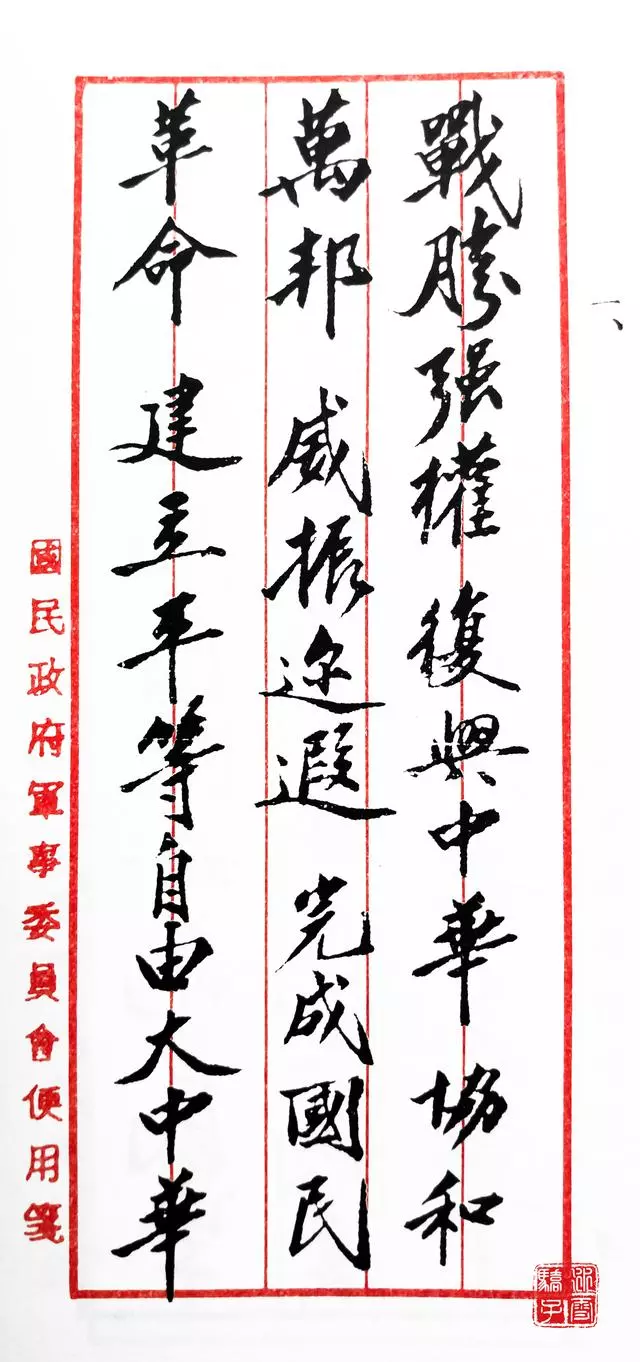 一、
戰勝强權 復興中華 協和
萬邦 威振迩遐 完成國民
革命 建立平等自由大中華
國民政府軍事委員會便用箋
迎雪驕子